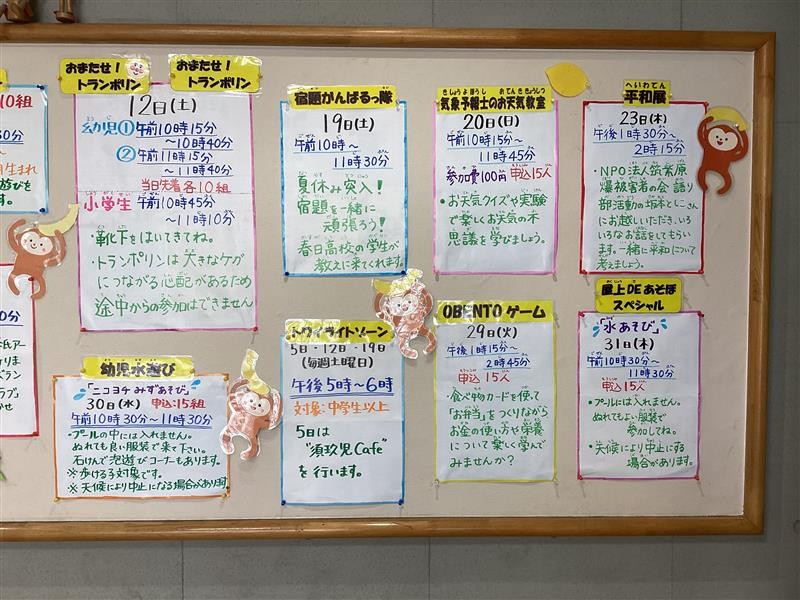 10組
おまたせ!
トランポリン
おまたせ!
トランポリン
12日(土)
幼児① 午前10時15分
～10時40分
② 午前11時15分
～11時40分
当日先着各10組
小学生 午前10時45分
～11時10分
・靴下をはいてきてね。
・トランポリンは大きなケガ
につながる心配があるため
途中からの参加はできません
宿題がんばるっ隊
19日(土)
午前10時～
11時30分
夏休み突入!
宿題を一緒に
頑張ろう!
春日高校の学生が
教えに来てくれます。
気象予報士のお天気教室
20日(日)
午前10時15分～
11時45分
参加費100円 申込15人
・お天気クイズや実験
で楽しくお天気の不
思議を学びましょう。
平和展
23日(木)
午後1時30分～
2時15分
・NPO法人筑紫原
爆被害者の会 語り
部活動の坂本とくさんに
お越しいただき、いろ
いろなお話をしてもらい
ます。一緒に平和について
考えましょう。
幼児水遊び
「ニコヨチみずあそび」
30日(水) 申込:15組
午前10時30分～11時30分
・プールの中には入れません。
ぬれても良い服装で来て下さい。
石けんで泡遊びコーナーもあります。
※歩ける子対象です。
※天候により中止になる場合があります
トワイライトゾーン
5日・12日・19日
(毎週土曜日)
午後5時～6時
対象:中学生以上
5日は
"須玖児Cafe"
を行います。
OBENTOゲーム
29日(火)
午後1時15分～
2時45分
申込15人
・食べ物カードを使って
「お弁当」をつくりながら
お金の使い方や栄養
について楽しく学んで
みませんか?
屋上DEあそぼ
スペシャル
「水あそび」
31日(木)
午前10時30分～
11時30分
申込15人
・プールには入れません。
ぬれてもよい服装で
参加してね。
・天候により中止にする
場合があります。